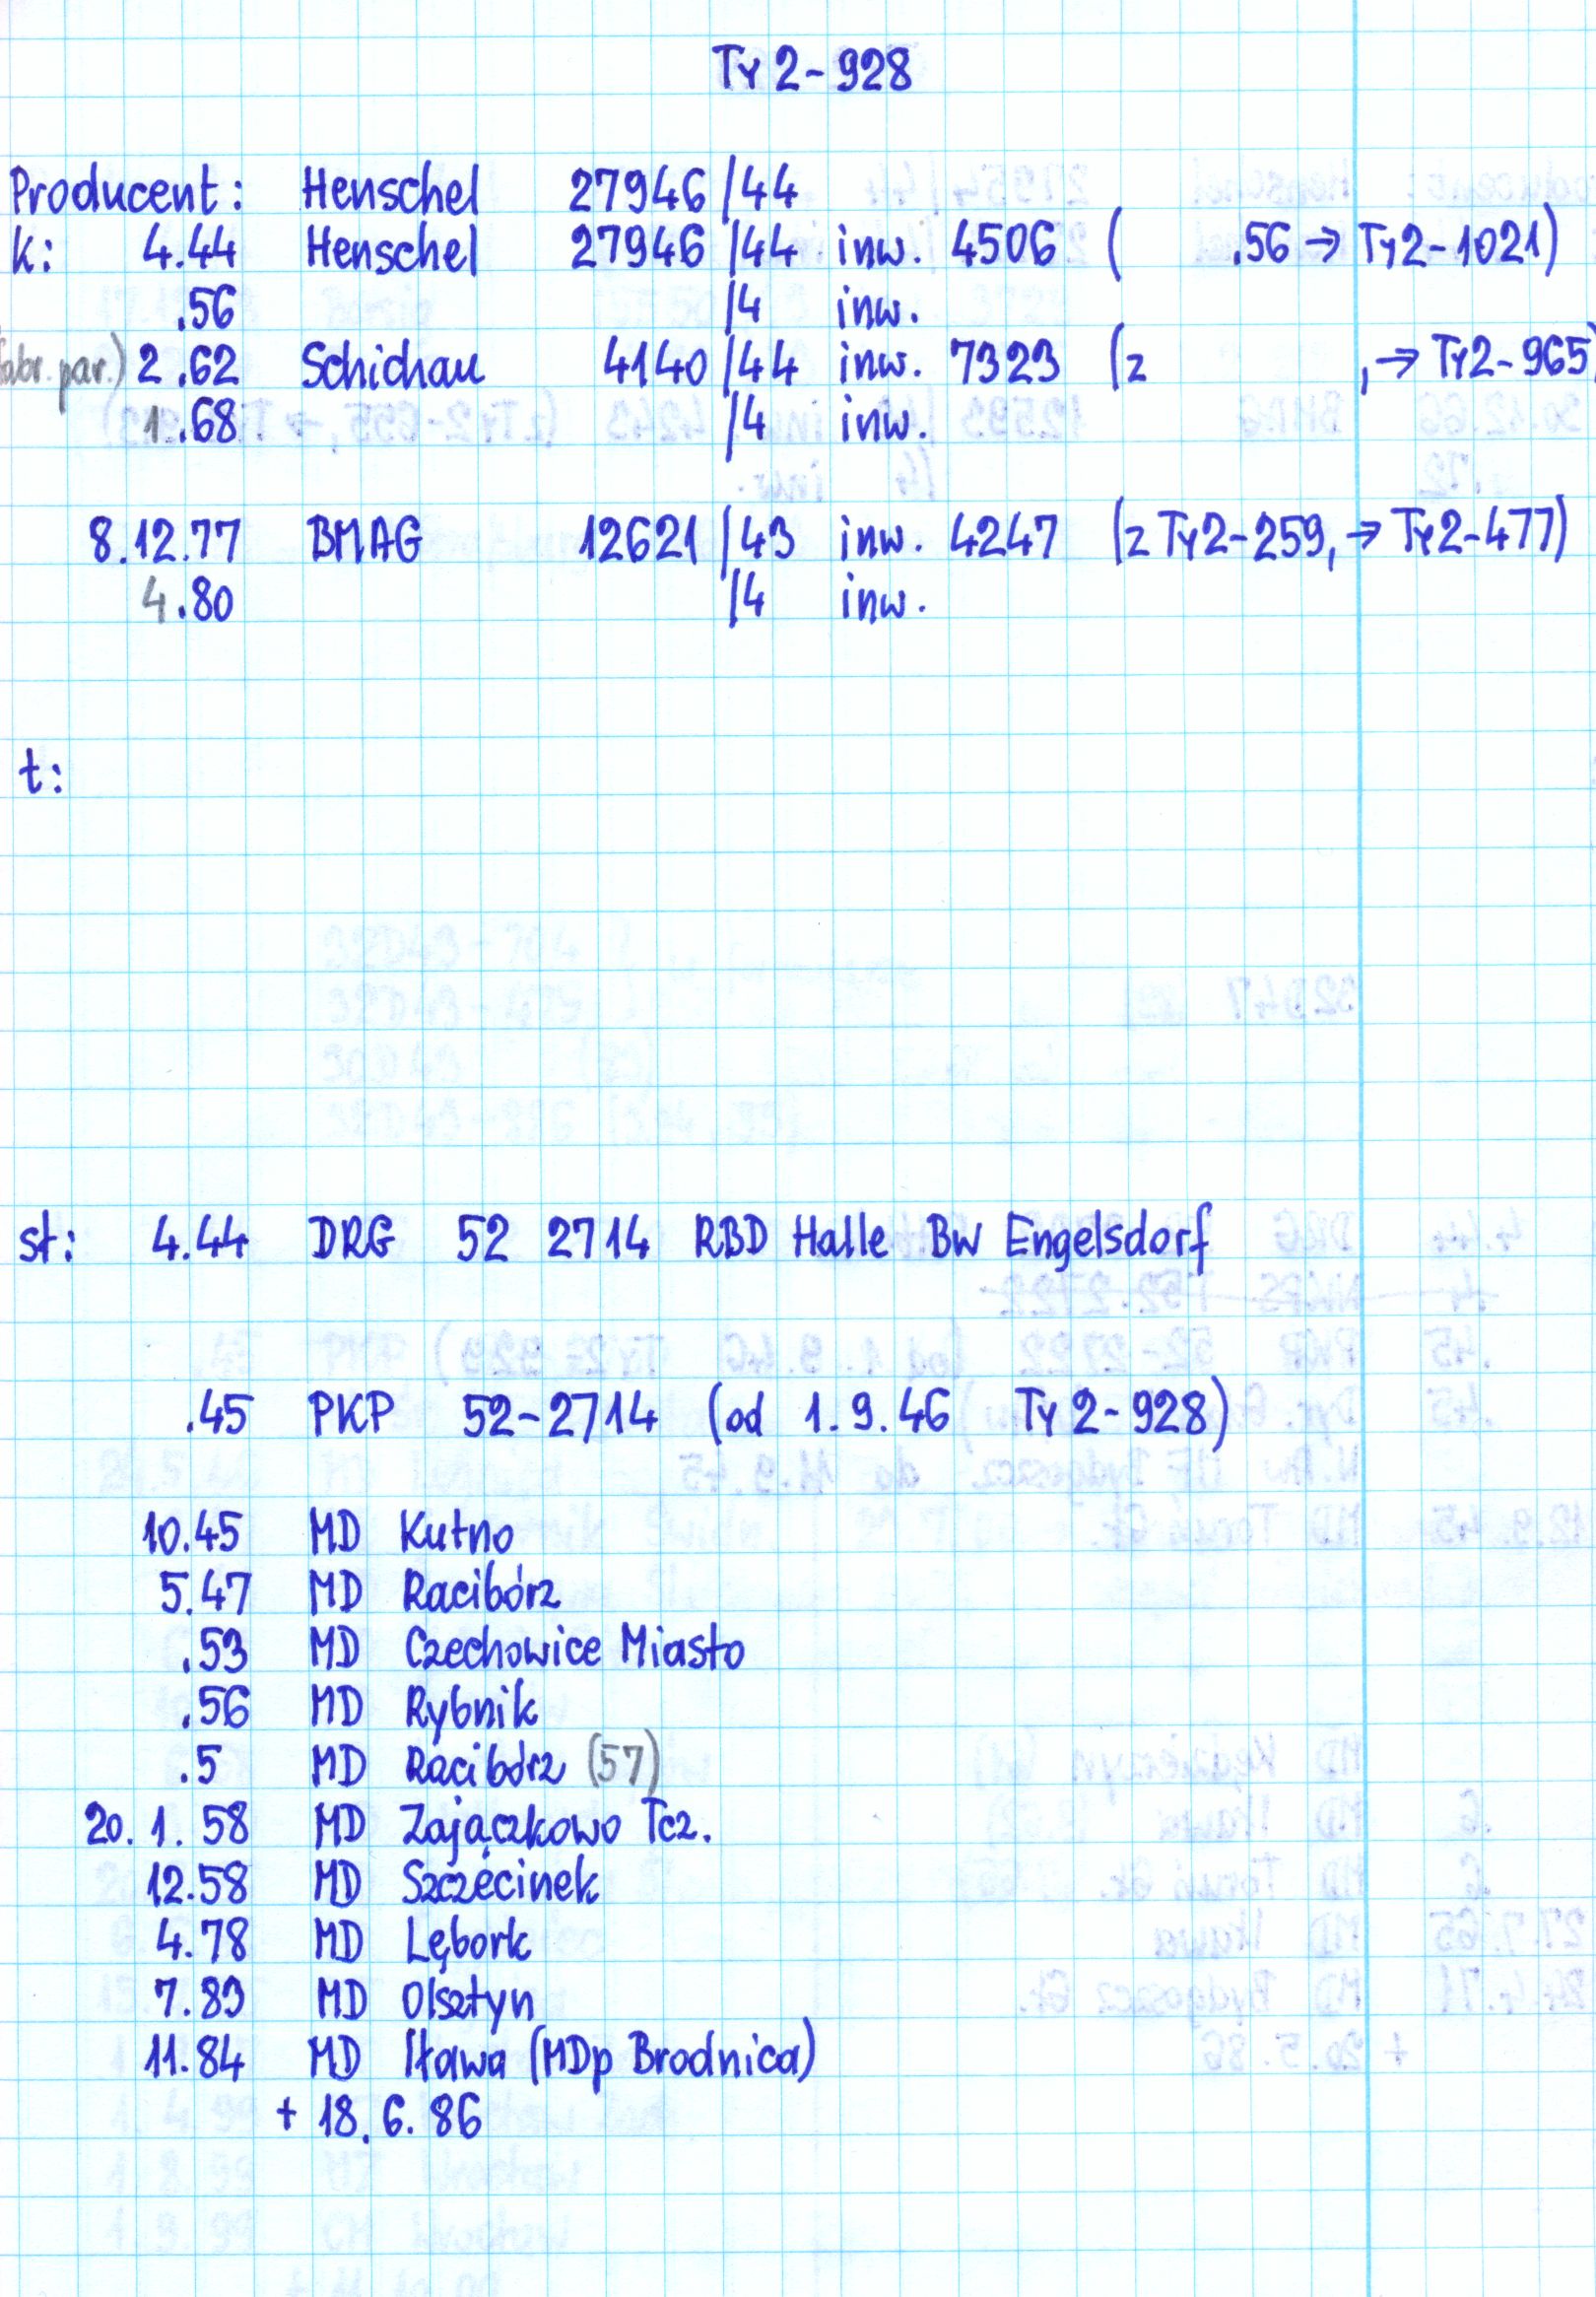 Ty2-928
Producent: Henschel 27946/44
k: 4.44 Henschel 27946/44 inw. 4506 ( .56 → Ty2-1021)
.56 /4 inw.
fabr. par.) 2.62 Schichau 4140/44 inw. 7323 (z , → Ty2-965)
1.68 /4 inw.
8.12.77 BMAG 12621/43 inw. 4247 (z Ty2-259, → Ty2-477)
4.80 /4 inw.
t:
st: 4.44 DRG 52 2714 RBD Halle BW Engelsdorf
.45 PKP 52-2714 (od 1.9.46 Ty2-928)
10.45 MD Kutno
5.47 MD Racibórz
.53 MD Czechowice Miasto
.56 MD Rybnik
.5 MD Racibórz (57)
20.1.58 MD Zajączkowo Tcz.
12.58 MD Szczecinek
4.78 MD Lębork
7.83 MD Olsztyn
11.84 MD Iława (MDp Brodnica)
+ 18.6.86